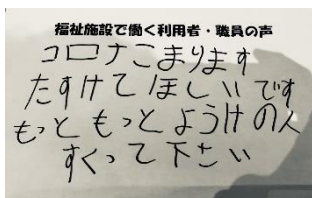 福祉施設で働く利用者・職員の声
コロナこまります
たすけてほしいです
もっともっとようけの人
すくって下さい